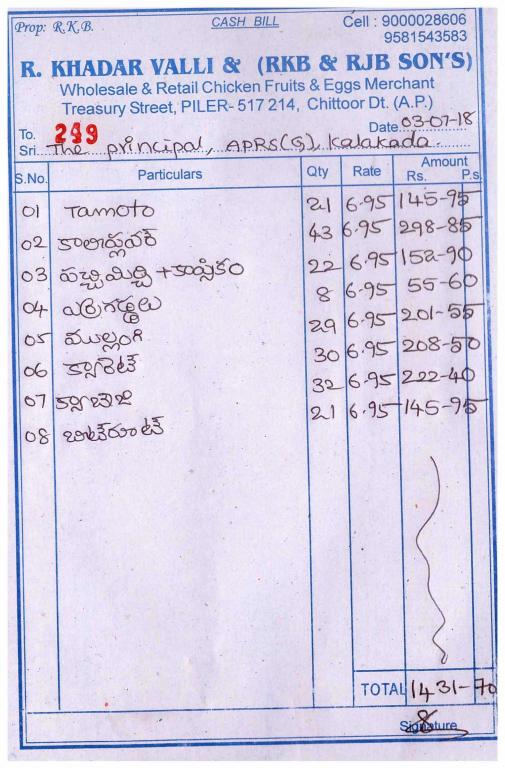 Prop: R.K.B. CASH BILL Cell : 9000028606
9581543583
R. KHADAR VALLI & (RKB & RJB SON'S)
Wholesale & Retail Chicken Fruits & Eggs Merchant
Treasury Street, PILER- 517 214, Chittoor Dt. (A.P.)
To. 249 Date 03-07-18
Sri. The principal, APRS(G), Kalakada.
S.No. Particulars Qty Rate Amount Rs. P.s.
01 Tamoto 21 6.95 145-95
02 కాలిఫ్లవర్ 43 6.95 298-85
03 పచ్చిమిర్చి +కాప్సికం 22 6.95 152-90
04 ఎర్రగడ్డలు 8 6.95 55-60
05 ముల్లంగి 29 6.95 201-55
06 క్యారెట్ 30 6.95 208-50
07 క్యాబేజి 32 6.95 222-40
08 బీట్‌రూట్ 21 6.95 145-95
TOTAL 1431-70
Signature